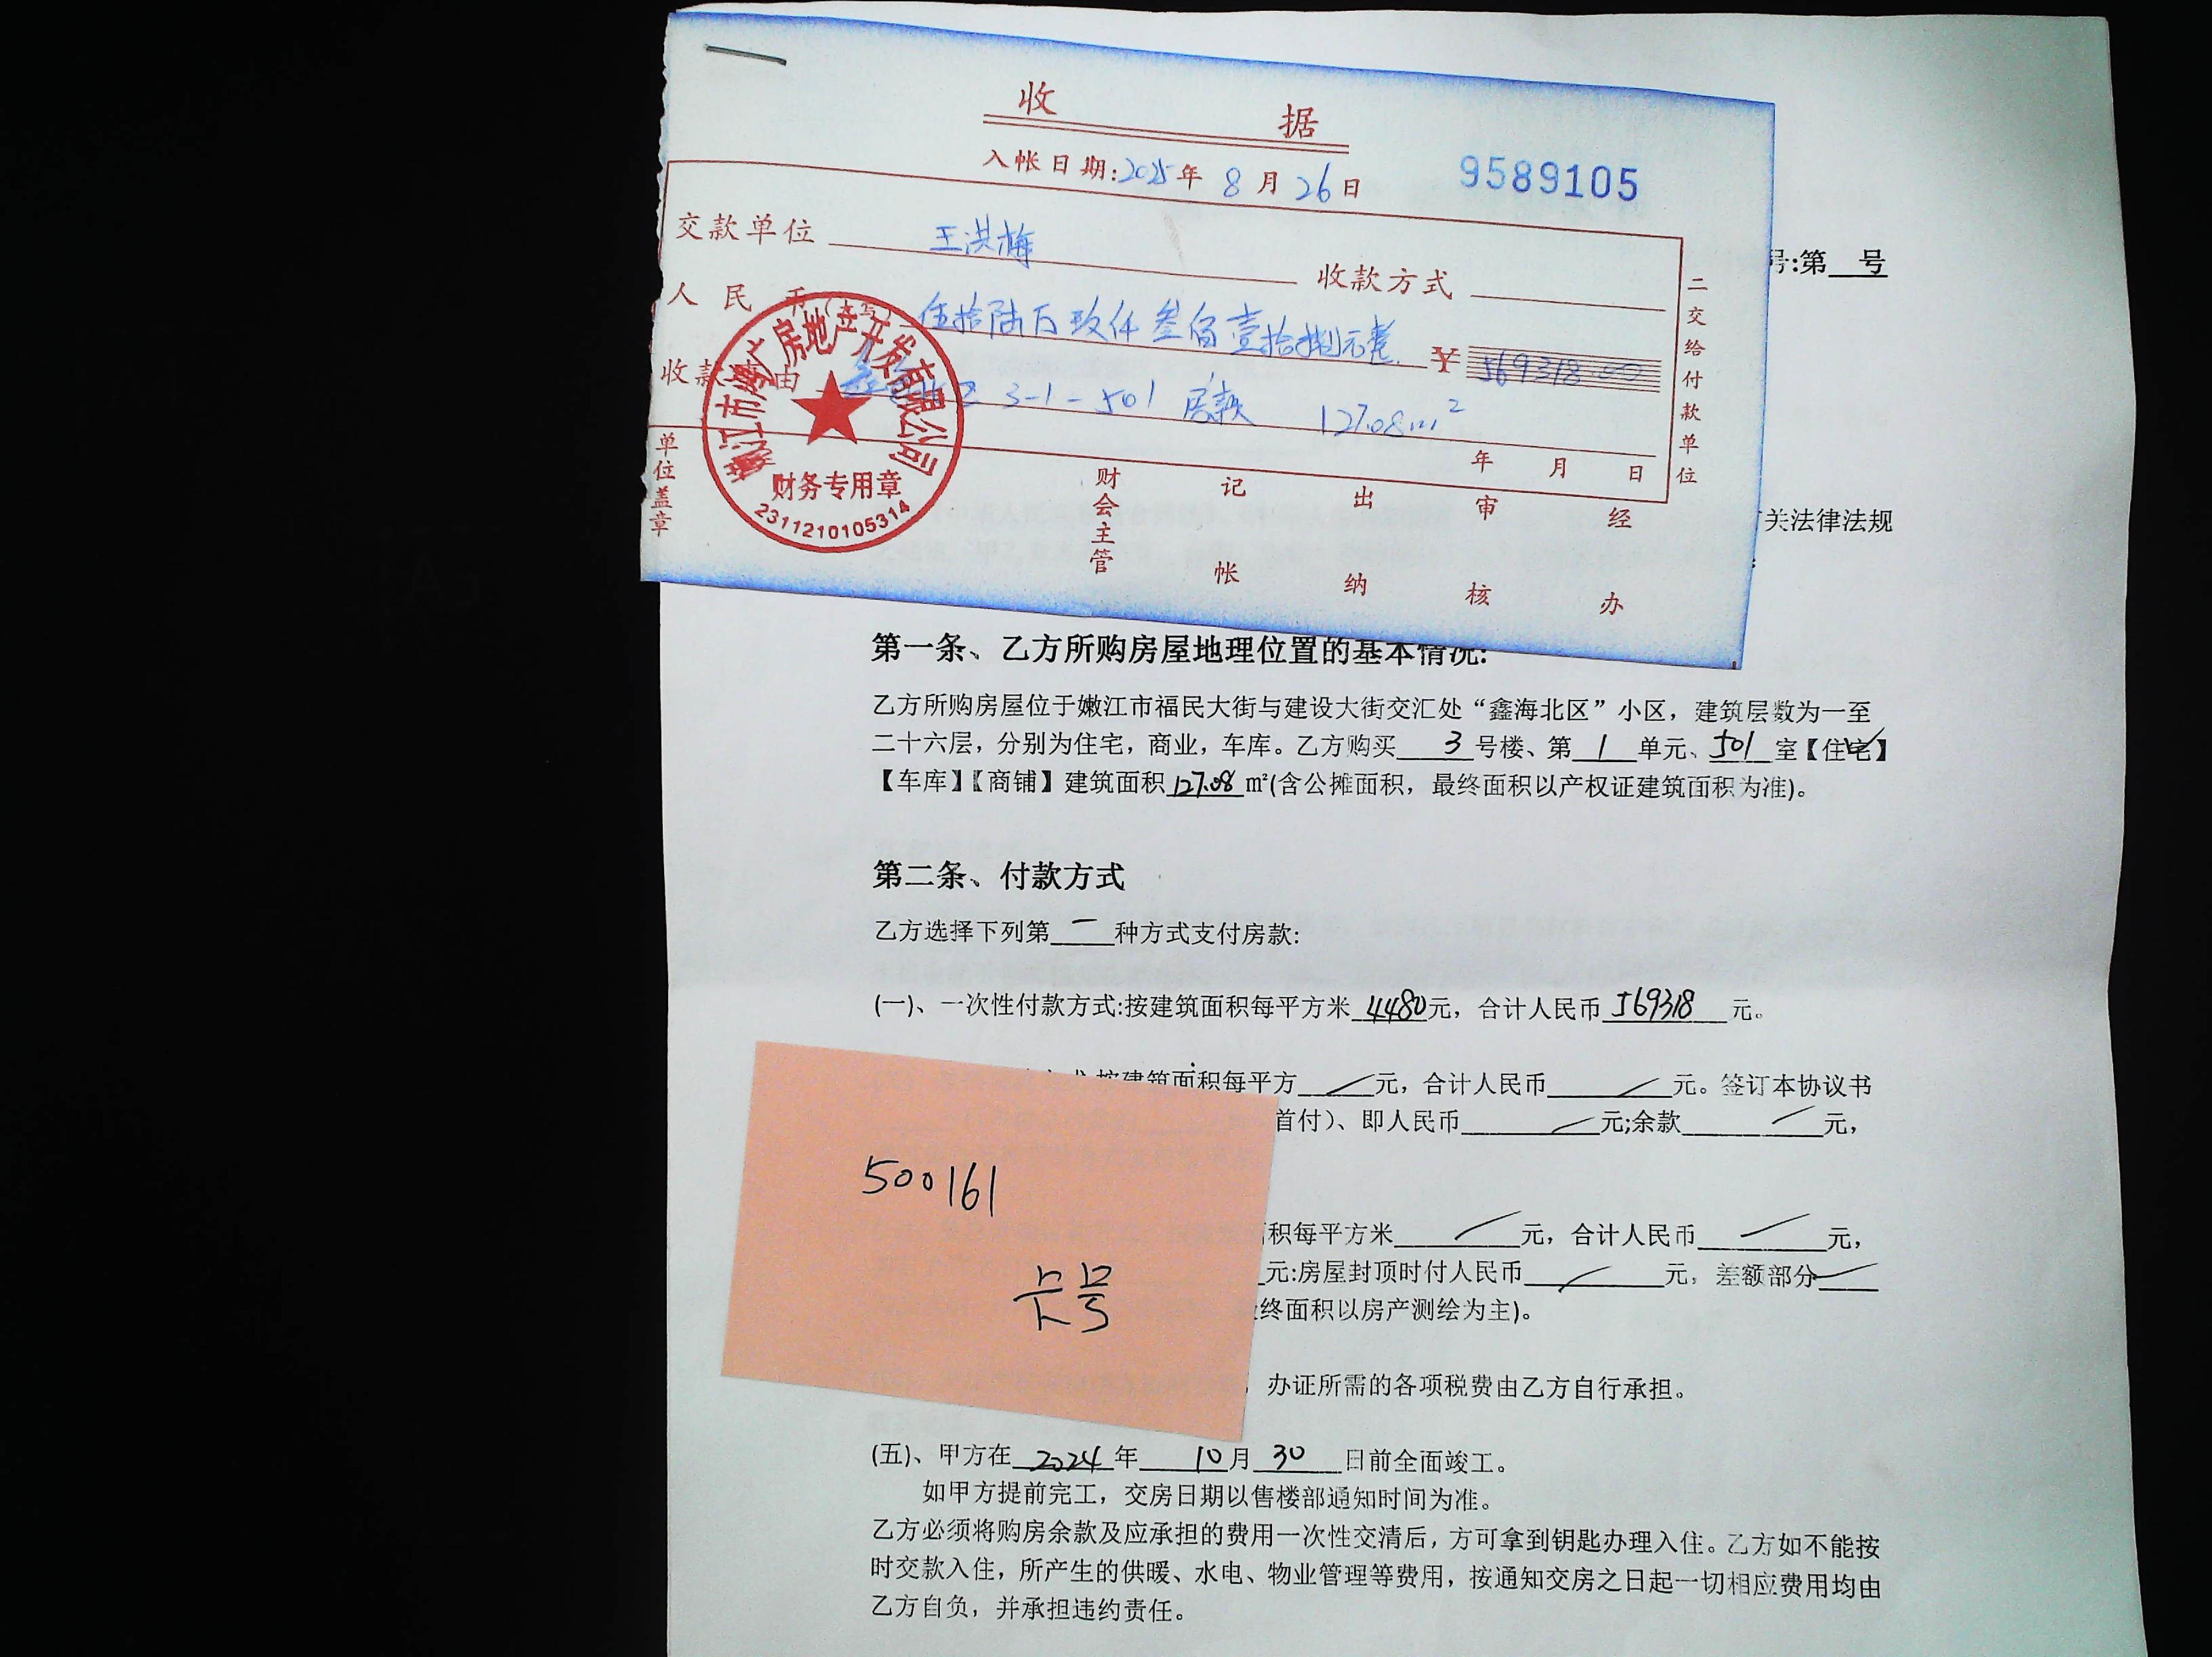 收 据
入帐日期:2025年 8月26日 9589105
交款单位 王洪梅 收款方式
人民币(大写) 伍拾陆万玖仟叁佰壹拾捌元整 ¥ 569318.00
收款事由 北区 3-1-501 房款 127.08m²
年 月 日
二交给付款单位
单位盖章 财会主管 记帐 出纳 审核 经办
房地产开发有限公司
财务专用章
2311210105314
号:第 号
关法律法规
第一条、乙方所购房屋地理位置的基本情况:
乙方所购房屋位于嫩江市福民大街与建设大街交汇处“鑫海北区”小区，建筑层数为一至
二十六层，分别为住宅，商业，车库。乙方购买 3 号楼、第 1 单元、501 室【住宅】
【车库】【商铺】建筑面积 127.08 ㎡(含公摊面积，最终面积以产权证建筑面积为准)。
第二条、付款方式
乙方选择下列第 一 种方式支付房款:
(一)、一次性付款方式:按建筑面积每平方米 4480元，合计人民币 569318 元。
按建筑面积每平方 元，合计人民币 元。签订本协议书
首付)、即人民币 元;余款 元，
积每平方米 元，合计人民币 元，
元:房屋封顶时付人民币 元，差额部分
终面积以房产测绘为主)。
办证所需的各项税费由乙方自行承担。
500161
卡号
(五)、甲方在 2024 年 10月 30 日前全面竣工。
如甲方提前完工，交房日期以售楼部通知时间为准。
乙方必须将购房余款及应承担的费用一次性交清后，方可拿到钥匙办理入住。乙方如不能按
时交款入住，所产生的供暖、水电、物业管理等费用，按通知交房之日起一切相应费用均由
乙方自负，并承担违约责任。